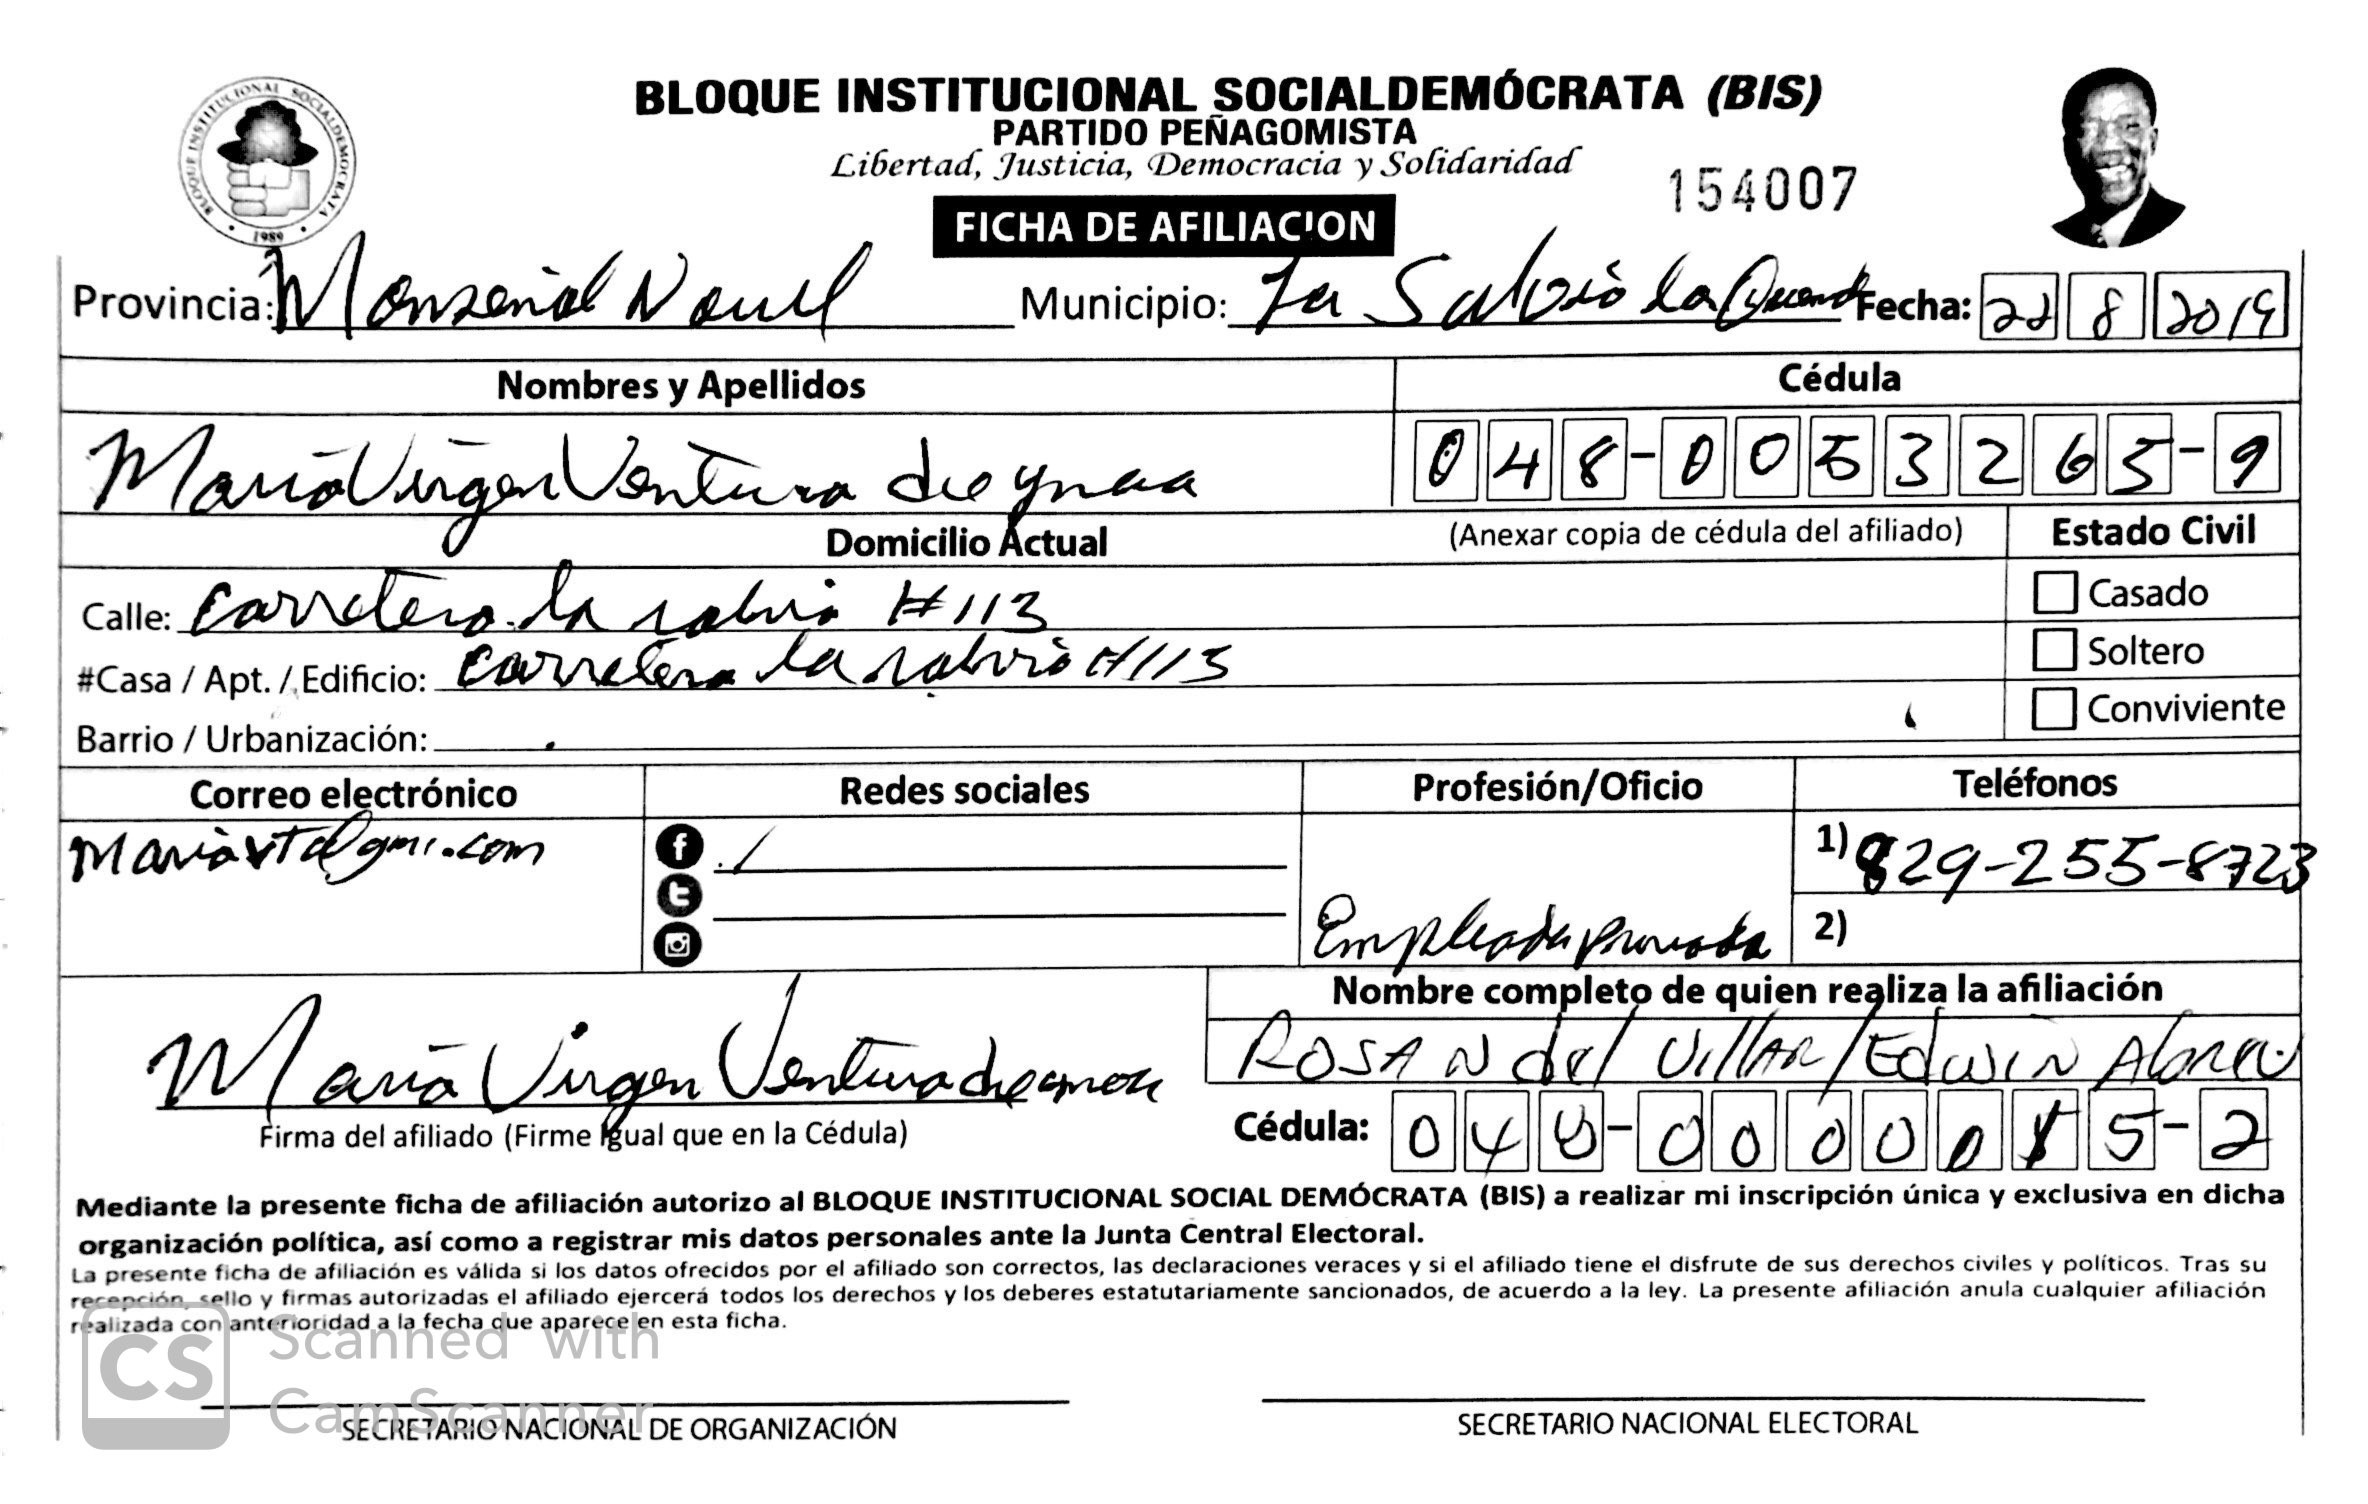 BLOQUE INSTITUCIONAL SOCIALDEMÓCRATA (BIS)
PARTIDO PEÑAGOMISTA
Libertad, Justicia, Democracia y Solidaridad
154007
BLOQUE INSTITUCIONAL SOCIALDEMOCRATA
1989
FICHA DE AFILIACION
Provincia: Monseñol Nouel Municipio: La Salvia la Fecha: 22 8 2019
Nombres y Apellidos Cédula
Maria Virgen Ventura de 048-0053265-9
Domicilio Actual (Anexar copia de cédula del afiliado) Estado Civil
Calle: carretera la salvia #113 Casado
#Casa / Apt. / Edificio: carretera la salvia #113 Soltero
Barrio / Urbanización: Conviviente
Correo electrónico Redes sociales Profesión/Oficio Teléfonos
1) 829-255-8723
Empleada privada 2)
Nombre completo de quien realiza la afiliación
ROSA N del VillAR / Edwin
Maria Virgen Ventura
Cédula: 048-0000015-2
Firma del afiliado (Firme Igual que en la Cédula)
Mediante la presente ficha de afiliación autorizo al BLOQUE INSTITUCIONAL SOCIAL DEMÓCRATA (BIS) a realizar mi inscripción única y exclusiva en dicha
organización política, así como a registrar mis datos personales ante la Junta Central Electoral.
La presente ficha de afiliación es válida si los datos ofrecidos por el afiliado son correctos, las declaraciones veraces y si el afiliado tiene el disfrute de sus derechos civiles y políticos. Tras su
recepción, sello y firmas autorizadas el afiliado ejercerá todos los derechos y los deberes estatutariamente sancionados, de acuerdo a la ley. La presente afiliación anula cualquier afiliación
realizada con anterioridad a la fecha que aparece en esta ficha.
CS Scanned with
CamScanner
SECRETARIO NACIONAL DE ORGANIZACIÓN SECRETARIO NACIONAL ELECTORAL